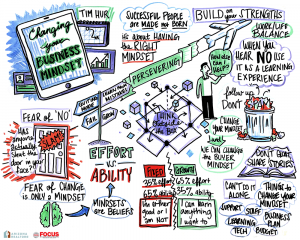 Changing
your
BUSINESS
MINDSET
TIM HUR
SUCCESSFUL PEOPLE
ARE MADE NOT BORN
it's about HAVING
the RIGHT
MINDSET
BUILD on your STRENGTHS
WORK/LIFE
BALANCE
WHEN YOU
HEAR NO USE
IT AS A LEARNING
EXPERIENCE
PERSEVERING
follow up
DON'T
FEAR OF 'NO'
Has
someone
actually
shut the
door in
your
face?
SLAM!
FEAR OF CHANGE
IS ONLY A MINDSET
EFFORT
vs
ABILITY
MINDSETS
ARE BELIEFS
THINK
outside
the Box
CHANGE
YOUR
MINDSET
WE CAN CHANGE
the BUYER
MINDSET
DON'T
SHARE STORIES
FIXED
35% effort
65% ability
GROWTH
65% effort
35% ability
I'm either
good or
I am
NOT
I can learn
anything
I want
to
CAN'T DO IT
ALONE
SUPPORT
STAFF
LEARNING
TECH
THINGS to CHANGE
YOUR MINDSET
BUSINESS
PLAN
BUDGET
FOCUS